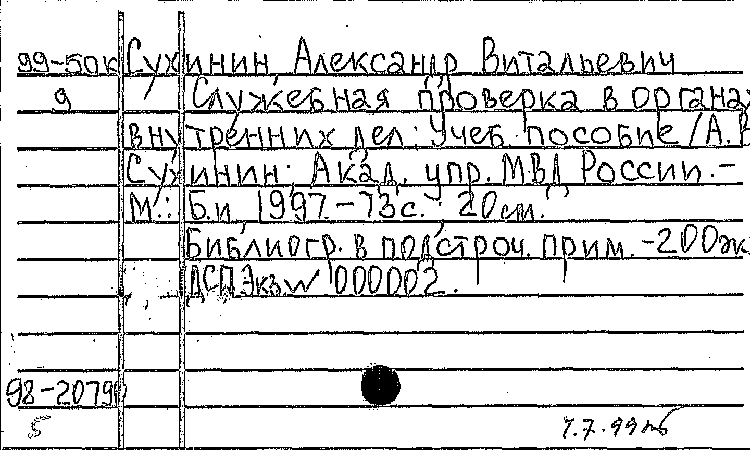 99-50к Сухинин, Александр Витальевич
9 Служебная проверка в органах
внутренних дел: Учеб. пособие / А.В.
Сухинин; Акад. упр. МВД России. -
М.: Б.и., 1997. - 73 с. 20 см.
Библиогр. в подстроч. прим. - 200 эк
ДСП Экз N 000002.
98-2079
5 7.7.99